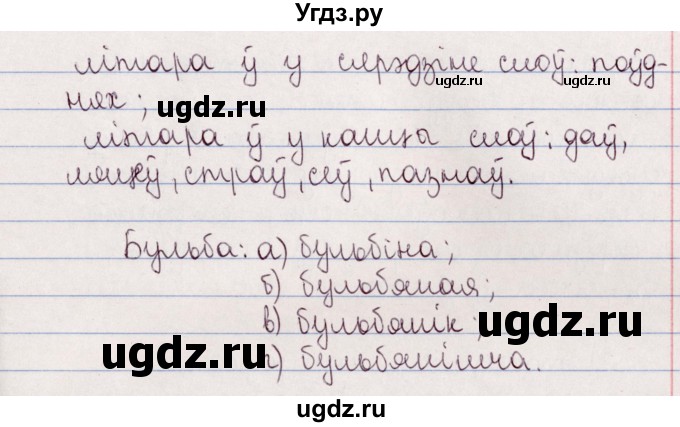 Угдз.ру
літара ў у сярэдзіне слоў: поўд-
ugdz.ru ugdz.ru
нях;
ugdz.ru
літара ў у канцы слоў: даў,
ўспеў, страў, сеў, пазнаў.
Бульба: а) бульбіна;
б) бульбяная;
в) бульбянік;
ugdz.ru
г) бульбянішча.
ugdz.ru
ugdz.ru